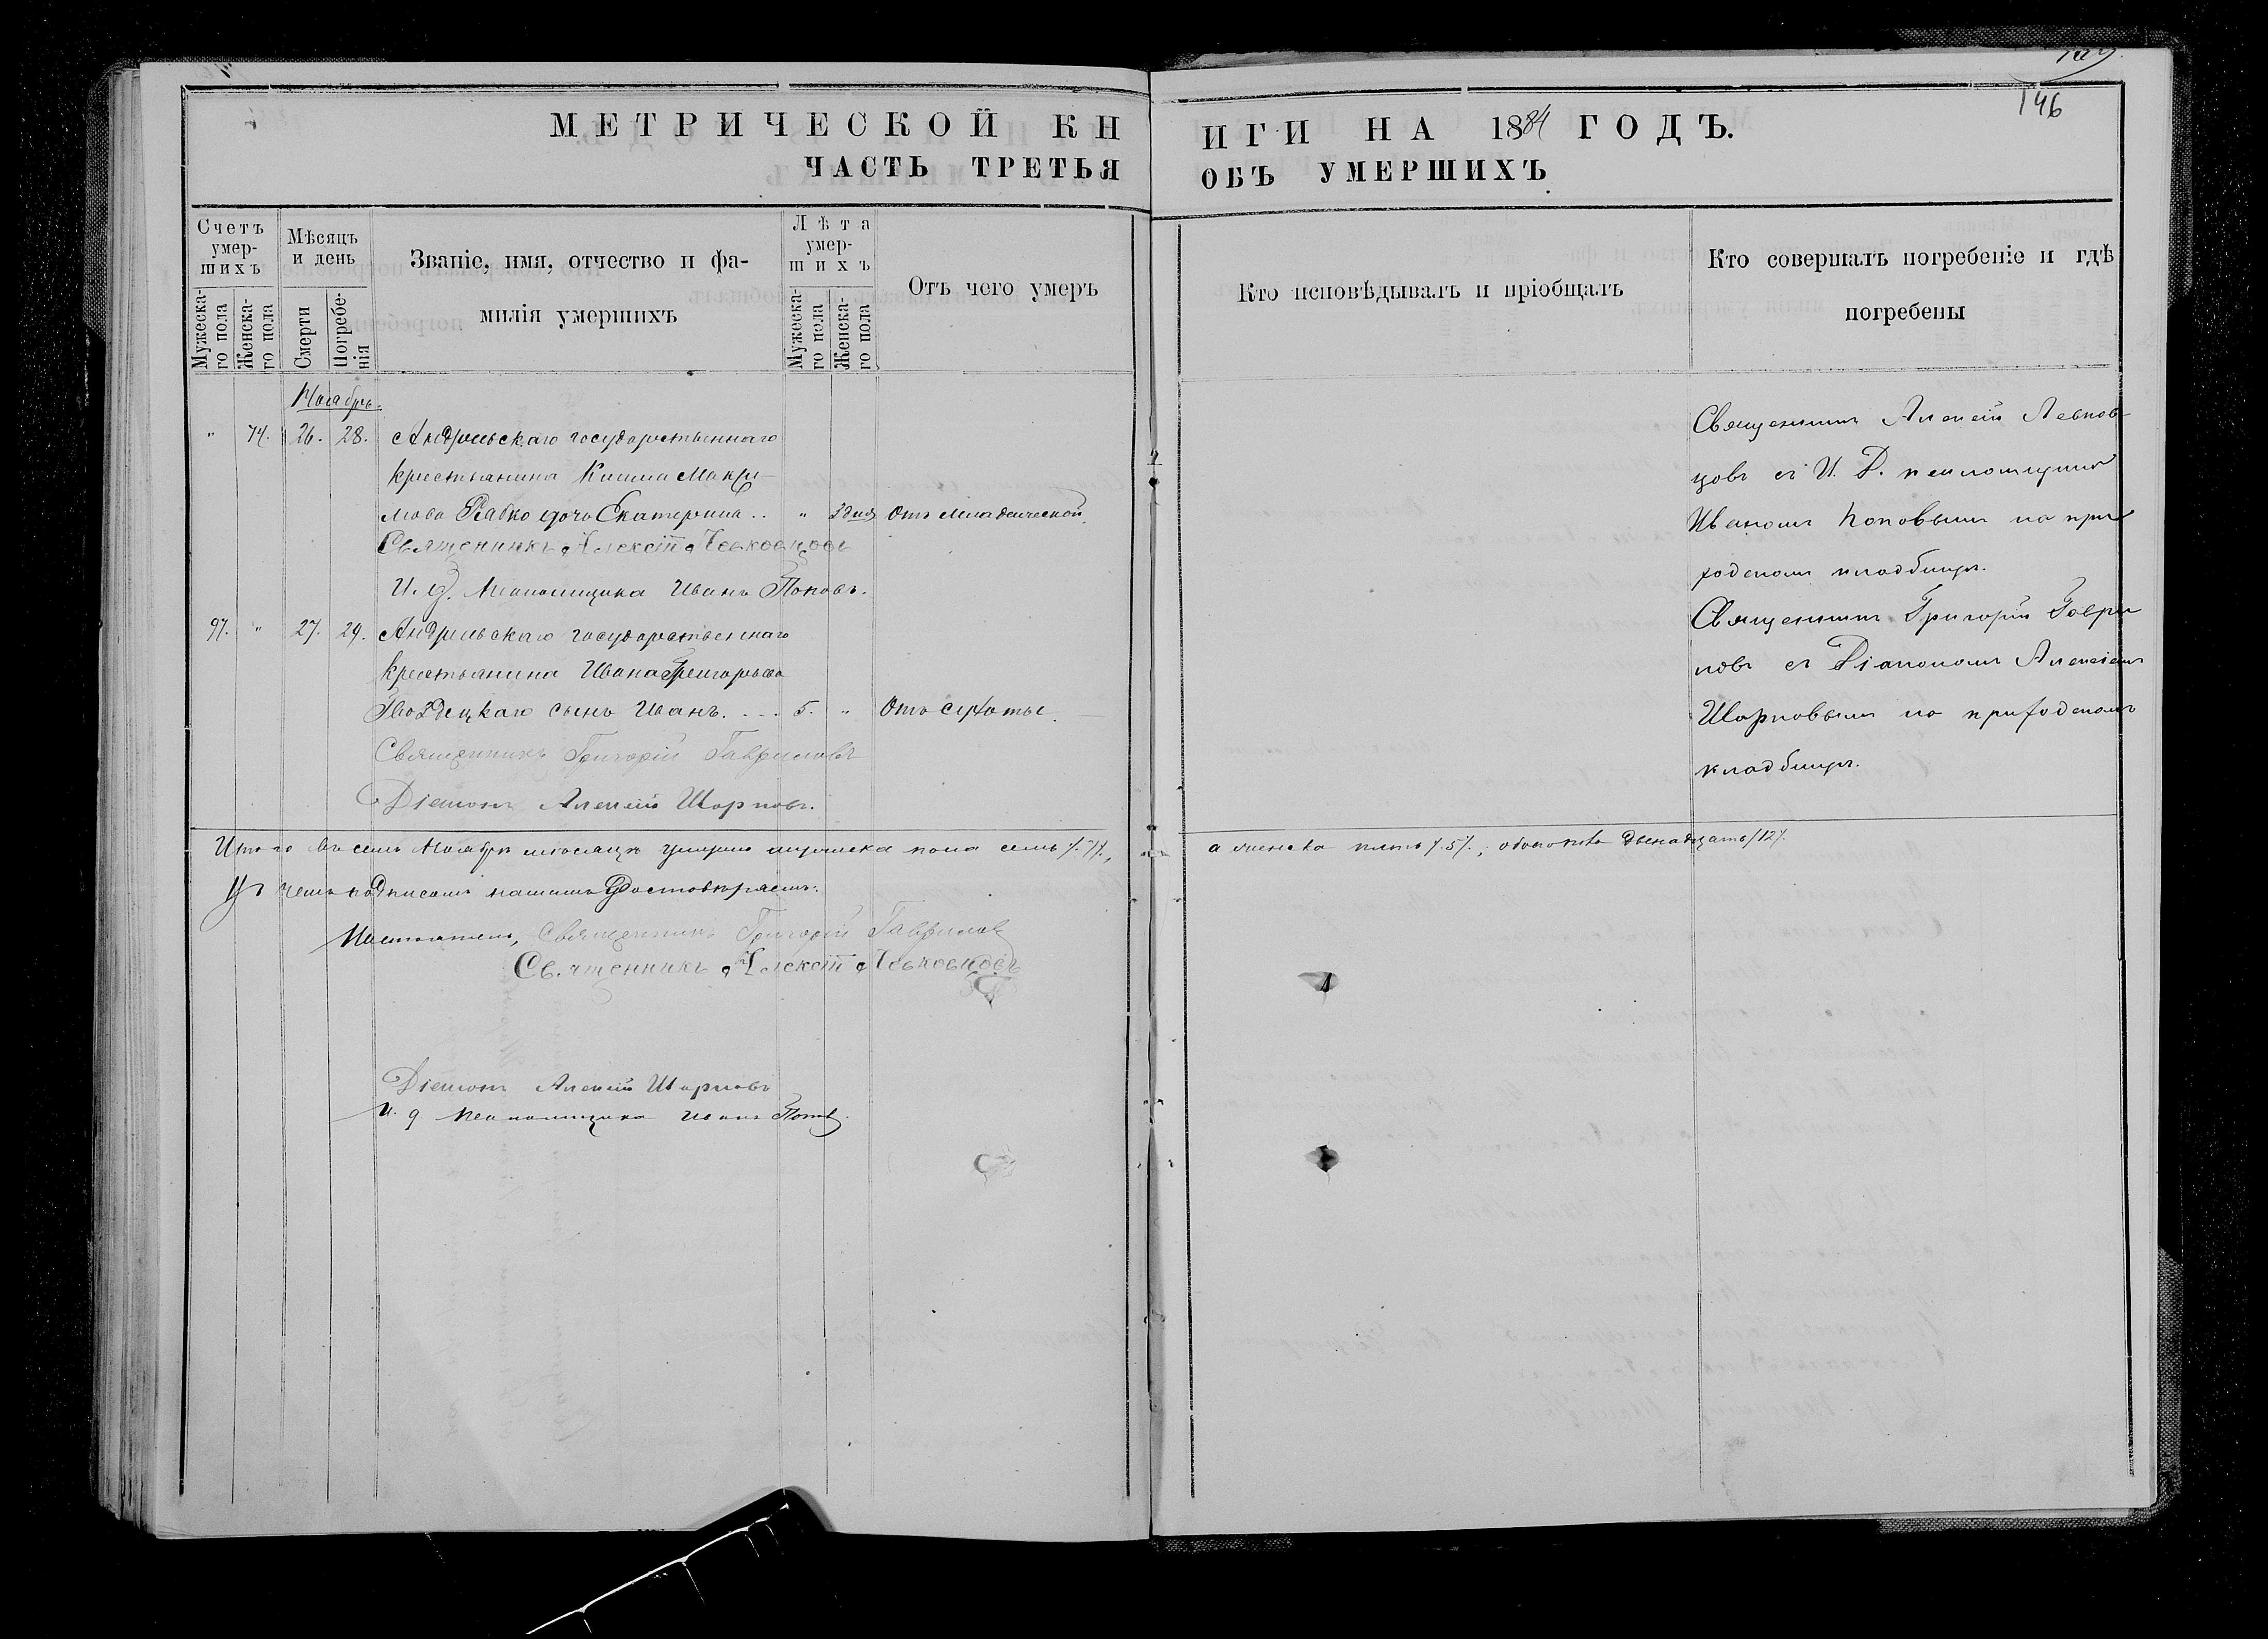 146
МЕТРИЧЕСКОЙ КНИГИ НА 1884 ГОДЪ.
ЧАСТЬ ТРЕТЬЯ ОБЪ УМЕРШИХЪ
Счетъ умер-шихъ
Мужеска-го пола
Женска-го пола
Мѣсяцъ и день
Смерти
Погребе-нія
Званіе, имя, отчество и фа-
милія умершихъ
Лѣта умер-шихъ
Мужеска-го пола
Женска-го пола
Отъ чего умеръ
Кто исповѣдывалъ и пріобщалъ
Кто совершалъ погребеніе и гдѣ
погребены
Ноябрь.
" 74. 26. 28. государственнаго
крестьянина Макси-
мова дочь Екатерина.. " Отъ младенческой.
Священникъ Алексѣй Левковцовъ
И. д. псаломщика Иванъ Поповъ.
Священникъ Алексѣй Левков-
цовъ съ И. Д. псаломщика
Иваномъ Поповымъ на при-
ходскомъ кладбищѣ.
97. " 27. 29. государственнаго
крестьянина Ивана Григорьева
Гвоздецкаго сынъ Иванъ. . . . 5. " Отъ сухоты.
Священникъ Григорій Гавриловъ
Діаконъ Алексѣй Шарповъ.
Священникъ Григорій Гаври-
ловъ съ Діакономъ Алексіемъ
Шарповымъ на приходскомъ
кладбищѣ.
Итого въ семъ Ноябрѣ мѣсяцѣ умерло мужеска пола семь /.7/., а женска пять /.5/., обоего двенадцать /12/.
Въ чемъ подписомъ нашимъ удостовѣряемъ:
Настоятель, Священникъ Григорій Гавриловъ
Священникъ Алексѣй Левковцовъ
Діаконъ Алексѣй Шарповъ
И. д. псаломщика Иванъ Поповъ.